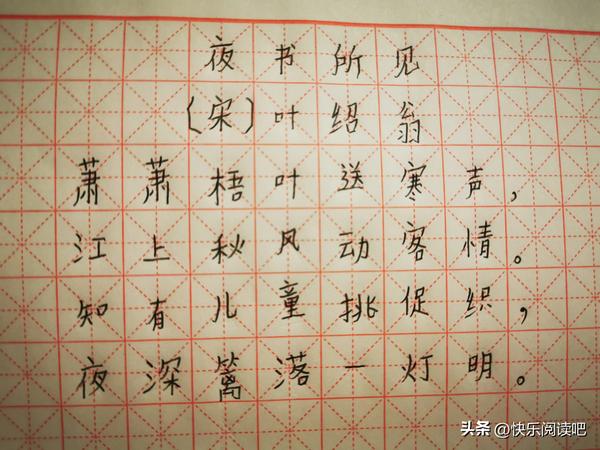 夜书所见
(宋)叶绍翁
萧萧梧叶送寒声,
江上秋风动客情。
知有儿童挑促织,
夜深篱落一灯明。
头条 @快乐阅读吧